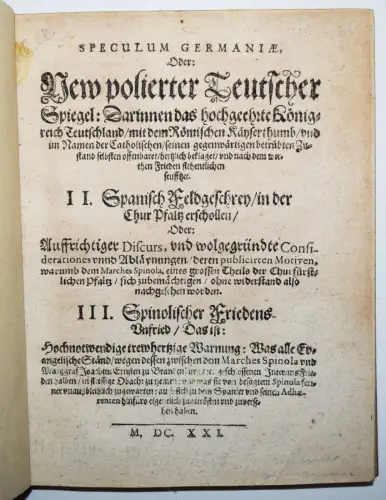 SPECULUM GERMANIÆ,
Oder:
New polierter Teutscher
Spiegel: Darinnen das hochgeehte König-
reich Teutschland/ mit dem Römischen Käyserthumb/ vnd
im Namen der Catholischen/ seinen gegenwärtigen betrübten Zu-
stand selbsten offenbaret/ hertzlich beklaget/ vnd nach dem wer-
then Frieden flehentlichen
seufftzet.
II. Spanisch Feldgeschrey/ in der
Chur Pfaltz erschollen/
Oder:
Auffrichtiger Discurs, vnd wolgegründte Consi-
derationes vnnd Ableynungen/ deren publicirten Motiven,
warumb dem Marches Spinola, eines grossen Theils der Churfürst-
lichen Pfaltz/ sich zubemächtigen/ ohne widerstand also
nachgesehen worden.
III. Spinolischer Friedens-
Vnfried/ Das ist:
Hochnotwendige trewhertzige Warnung: Was alle Ev-
angelische Ständ/ wegen dessen zwischen dem Marches Spinola vnd
Marggraf Joachim Ernsten zu Brandenburg/ &c. geschlossenen Interims Frie-
den halben/ in fleissige Obacht zu
was sie von besagtem Spinola fer-
ner
zugewarten: auch
sich zu dem Spanier vnd seinen Adhæ-
renten hinfüro eigentlich zugetrösten vnd zuverse-
hen haben.
M. DC. XXI.